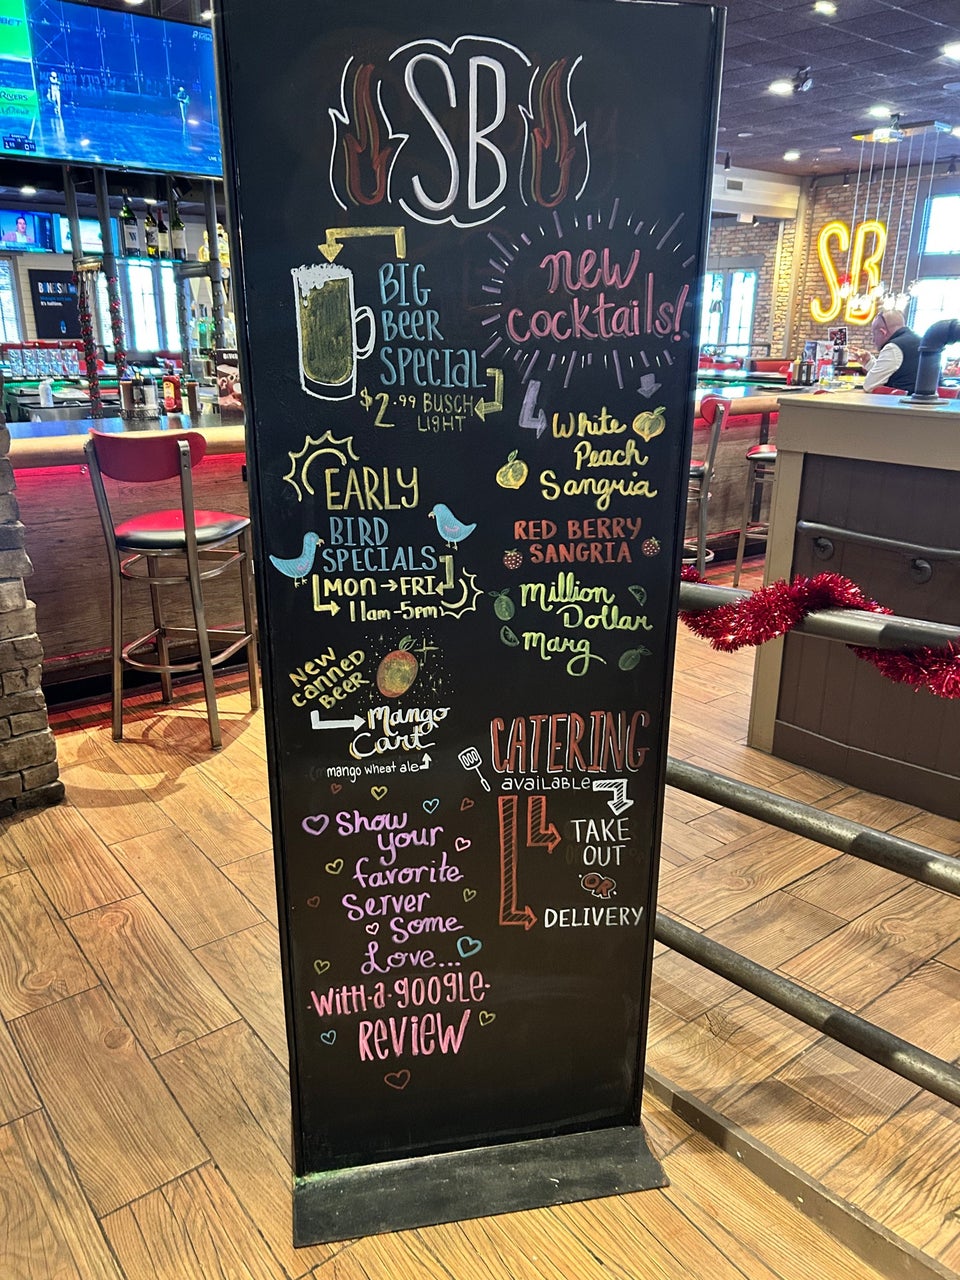 SB
BIG
BEER
SPECIAL
$2.99 BUSCH
LIGHT
EARLY
BIRD
SPECIALS
MON → FRI
11am-5pm
NEW
CANNED
BEER
Mango
Cart
mango wheat ale
Show
your
favorite
Server
Some
Love...
WITH-A-GOOGLE-
REVIEW
new
cocktails!
White
Peach
Sangria
RED BERRY
SANGRIA
Million
Dollar
Marg
CATERING
available
TAKE
OUT
OR
DELIVERY
SB